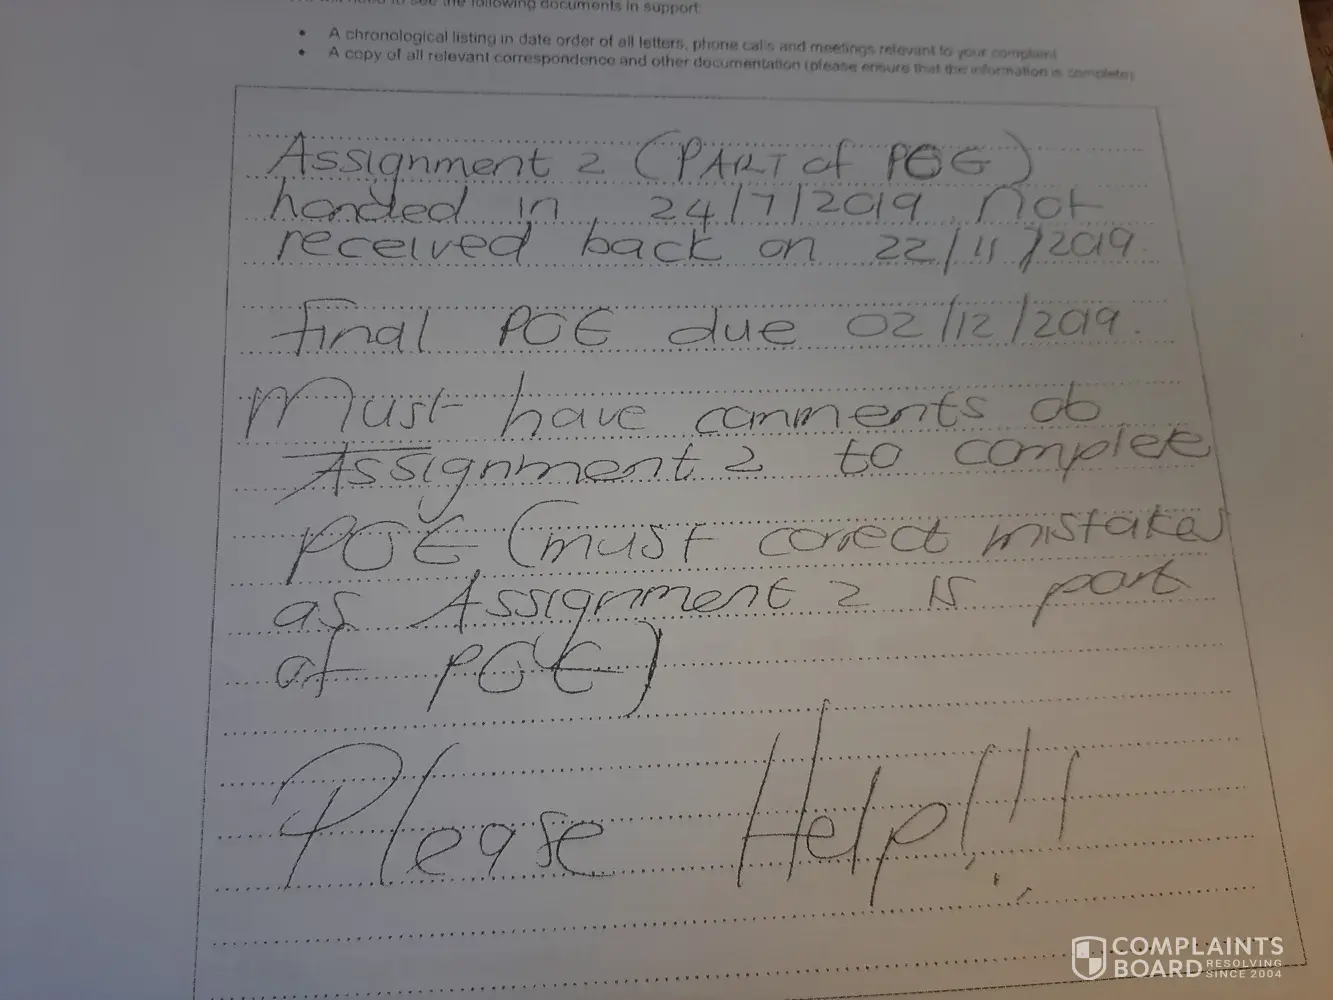 We will need to see the following documents in support:
• A chronological listing in date order of all letters, phone calls and meetings relevant to your complaint
• A copy of all relevant correspondence and other documentation (please ensure that the information is complete)
Assignment 2 (PART of POE)
handed in 24/7/2019 not
received back on 22/11/2019.
final POE due 02/12/2019.
Must have comments ob
Assignment 2 to complete
POE (must correct mistakes
as Assignment 2 is part
of POE)
Please Help!!!
COMPLAINTS
BOARD RESOLVING
SINCE 2004